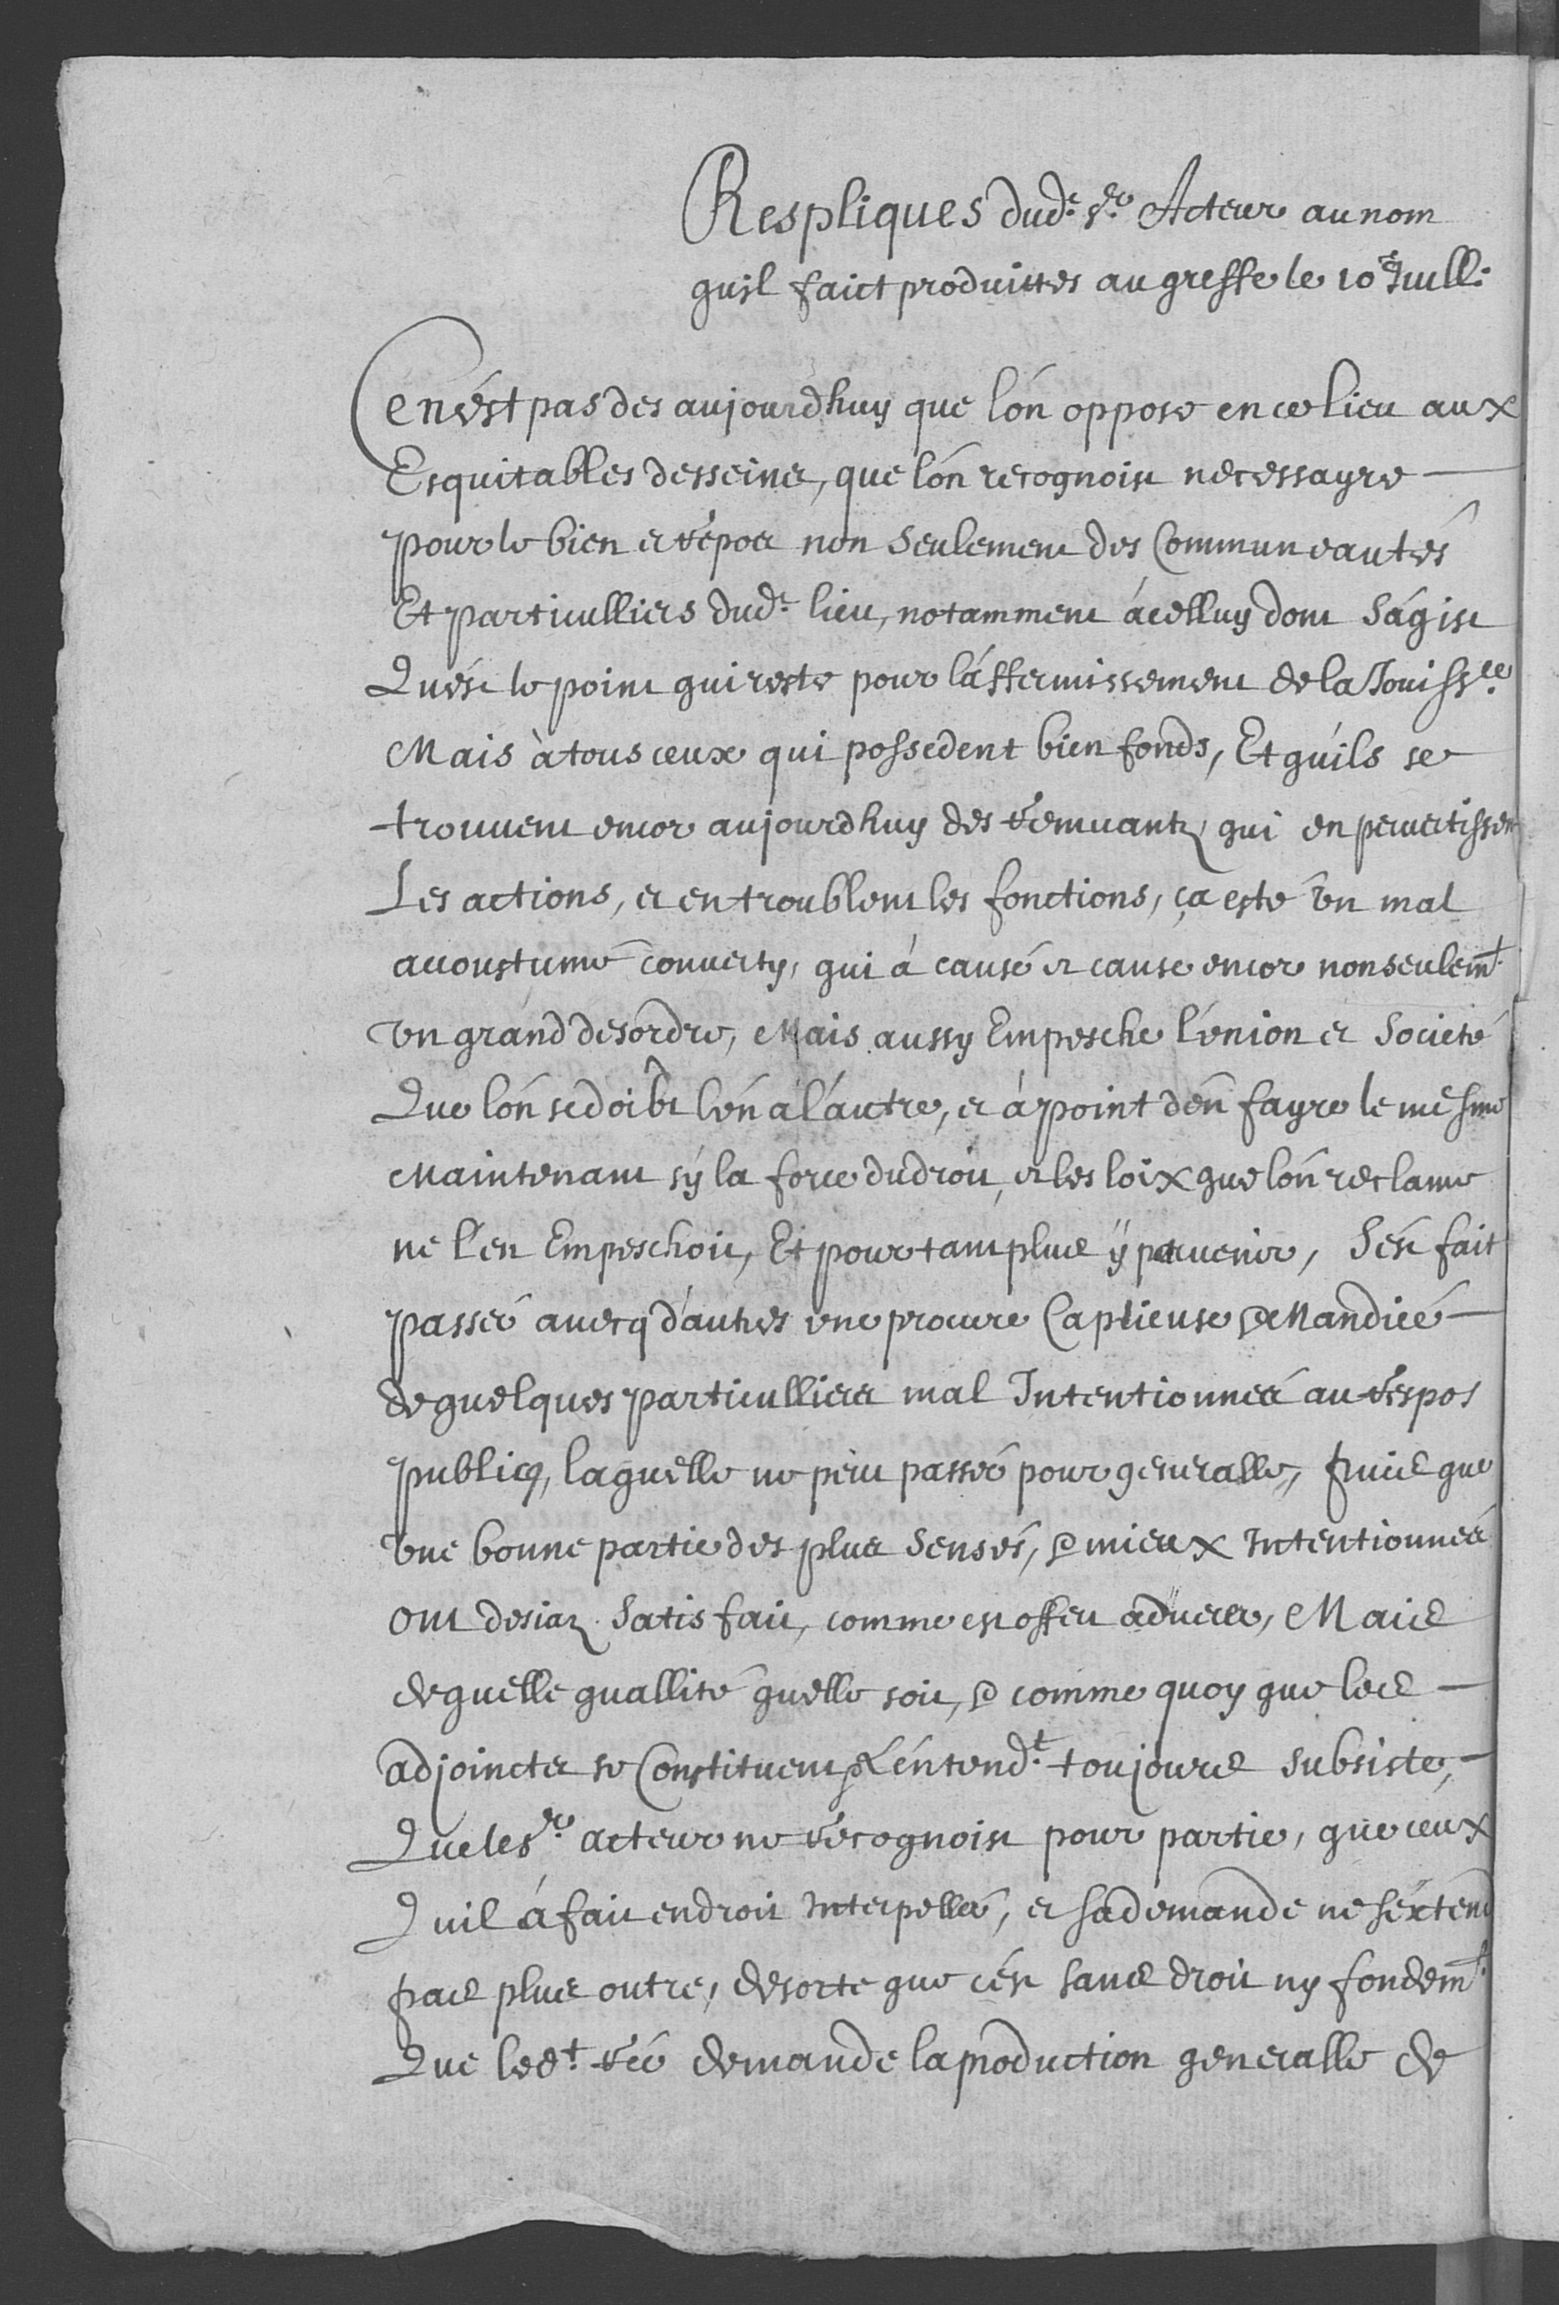 Respliques dud.t s.r Acteur au nom
quil faict produittes au greffe le 10.e Juill.
Ce nést pas des aujourdhuy que lón oppose en ce lieu aux
Esquitables desseins, que lón recognoist necessayre
pour le bien et répos non seulement des Communeautés
Et particulliers dud.t lieu, notamment á celluy dont ságist
Quést le point qui reste pour láffermissement de la Jouiss.ce
Mais à tous ceux qui possedent bien fonds, Et quíls se
trouvent encor aujourdhuy des rémuantz qui en pervertissent
Les actions, et en troublent les fonctions, ça esté vn mal
accoustumé couverty, qui á causé et cause encor non seulem.t
vn grand desordre, Mais aussy Empesche lúnion et Societé
Que lón se doibt lún á láutre, et á point dén fayre le mesme
Maintenant sy la force du droit, et les loix que lón reclame
ne lén Empeschoit, Et pour tant plus ÿ parvenir, Sést fait
passer avecq dáutres vne procure Captieuse et Mandiée
de quelques particulliers mal Intentionnés au réspos
publicq, laquelle ne peut passer pour generalle, puis que
vne bonne partie des plus Sensés, et mieux Intentionnés
ont desiaz Satisfait, comme est offert adverer, Mais
de quelle quallité quélle soit, et comme quoy que les
adjoincts se Constituent, Léntend.t toujours subsiste,
Que le s.r acteur ne récognoist pour partie, que ceux
Quil á fait en droit Interpeller, et sa demande ne séxtend
pas plus outre, de sorte que cést sans droit ny fondem.t
Que led.t réé demande la production generalle de